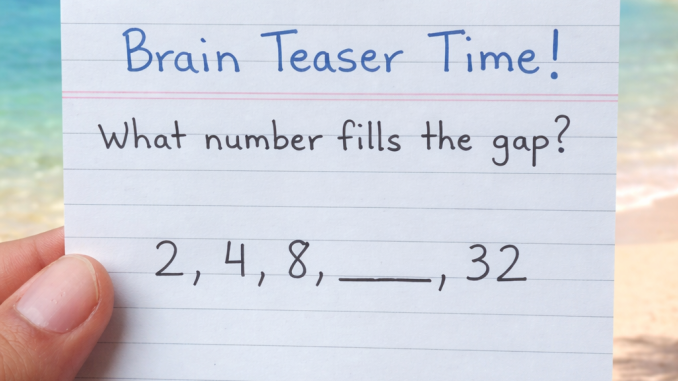 Brain Teaser Time!
What number fills the gap?
2, 4, 8, ____, 32